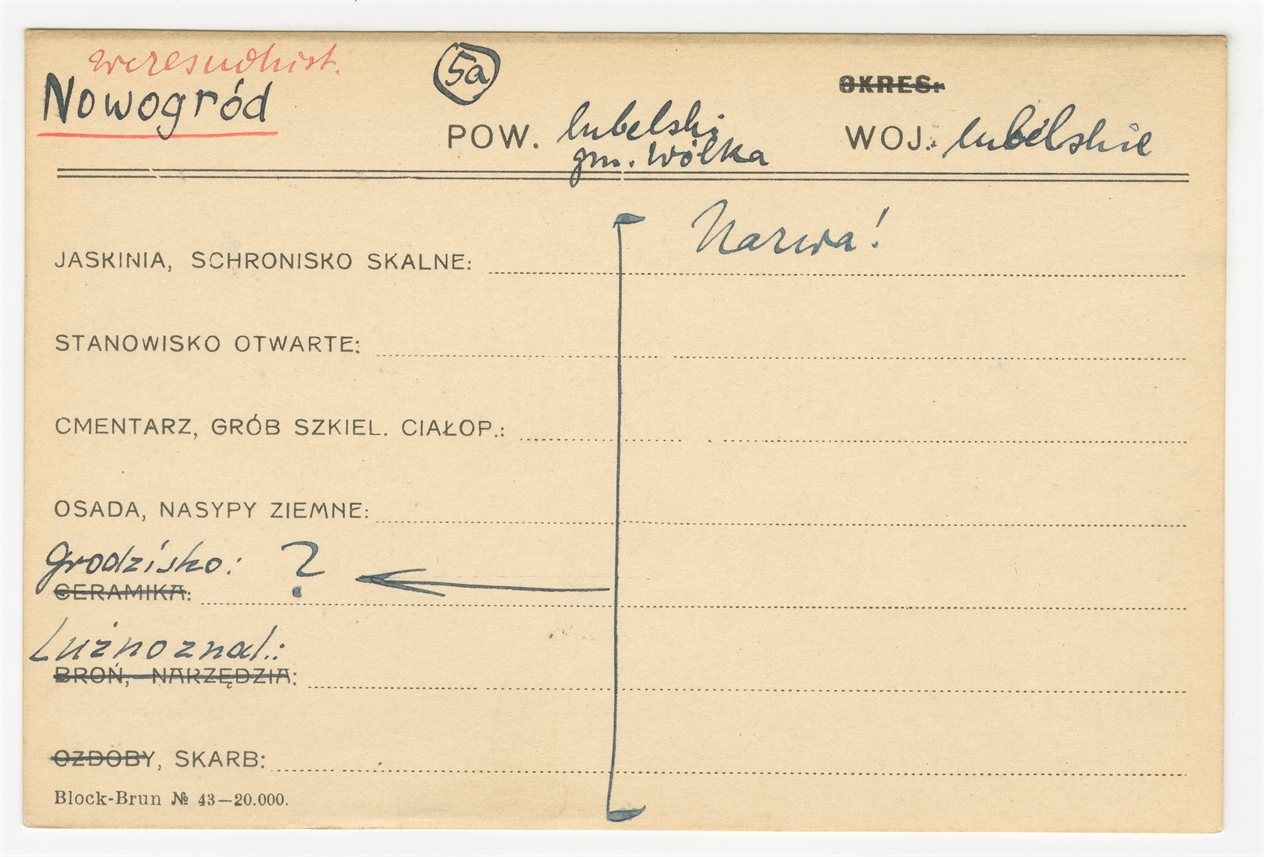 wczesnohist.
Nowogród
5a
OKRES:
POW. lubelski
gm. Wólka
WOJ.: lubelskie
Nazwa!
JASKINIA, SCHRONISKO SKALNE:
STANOWISKO OTWARTE:
CMENTARZ, GRÓB SZKIEL. CIAŁOP.:
OSADA, NASYPY ZIEMNE:
grodzisko: ?
CERAMIKA:
Luźno znal.:
BROŃ, NARZĘDZIA:
OZDOBY, SKARB:
Block-Brun № 43—20.000.